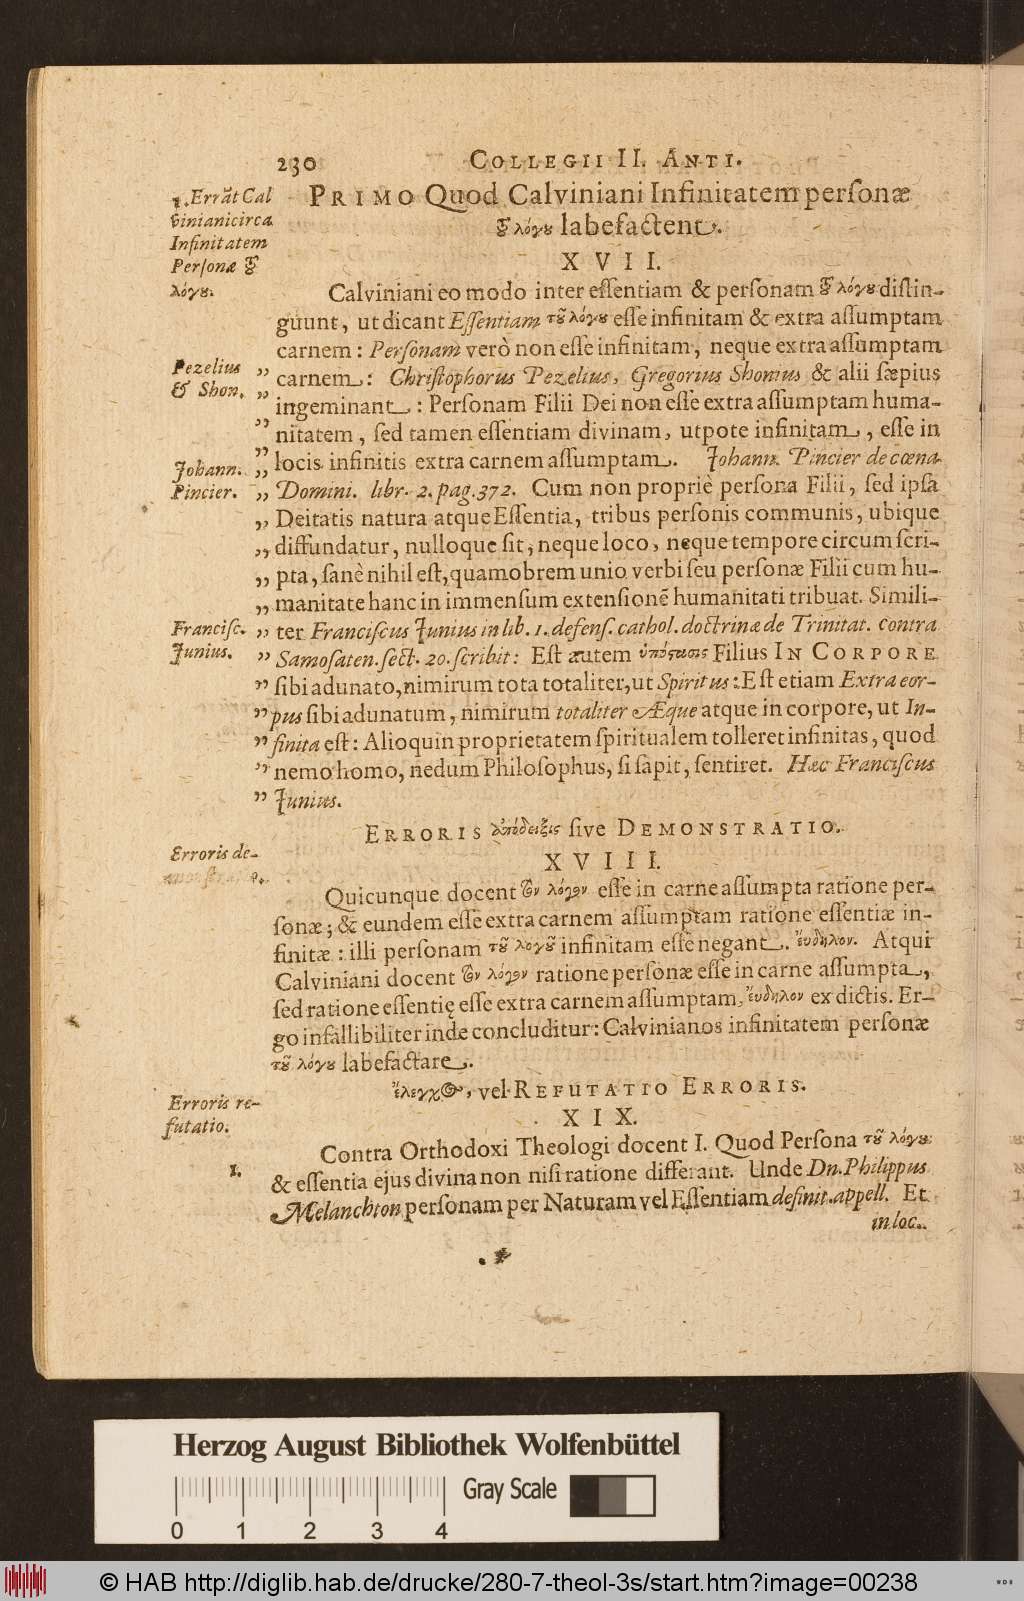 230 COLLEGII II. ANTI.
1. Errãt Cal
viniani circa
Infinitatem
Personæ τȣ͂
λόγȣ.
PRIMO Quod Calviniani Infinitatem personæ
τȣ͂ λόγȣ labefactent.
XVII.
Calviniani eo modo inter essentiam & personam τȣ͂ λόγȣ distin-
guunt, ut dicant Essentiam τȣ͂ λόγȣ esse infinitam & extra assumptam
carnem: Personam verò non esse infinitam, neque extra assumptam
Pezelius
& Shon.
„ carnem: Christophorus Pezelius, Gregorius Shonius & alii sæpius
„ ingeminant: Personam Filii Dei non esse extra assumptam huma-
„ nitatem, sed tamen essentiam divinam, utpote infinitam, esse in
Johann.
Pincier.
„ locis infinitis extra carnem assumptam. Johann. Pincier de cœna
„ Domini. libr. 2. pag. 372. Cum non propriè persona Filii, sed ipsa
„ Deitatis natura atque Essentia, tribus personis communis, ubique
„ diffundatur, nulloque sit, neque loco, neque tempore circumscri-
„ pta, sanè nihil est, quamobrem unio verbi seu personæ Filii cum hu-
„ manitate hanc in immensum extensionẽ humanitati tribuat. Simili-
Francisc.
Junius.
„ ter Franciscus Junius in lib. 1. defens. cathol. doctrinæ de Trinitat. contra
„ Samosaten. sect. 20. scribit: Est autem ὑπόστασις Filius IN CORPORE
„ sibi adunato, nimirum tota totaliter, ut Spiritus: Est etiam Extra cor-
„ pus sibi adunatum, nimirum totaliter Æque atque in corpore, ut In-
„ finita est: Alioquin proprietatem spiritualem tolleret infinitas, quod
„ nemo homo, nedum Philosophus, si sapit, sentiret. Hæc Franciscus
„ Junius.
ERRORIS ἀπόδειξις sive DEMONSTRATIO.
Erroris de-
monstratio.
XVIII.
Quicunque docent τὸν λόγον esse in carne assumpta ratione per-
sonæ; & eundem esse extra carnem assumptam ratione essentiæ in-
finitæ: illi personam τȣ͂ λογȣ͂ infinitam esse negant. ἔυδηλον. Atqui
Calviniani docent τὸν λόγον ratione personæ esse in carne assumpta,
sed ratione essentię esse extra carnem assumptam, ἔυδηλον ex dictis. Er-
go infallibiliter inde concluditur: Calvinianos infinitatem personæ
τȣ͂ λόγȣ labefactare.
ἔλεγχος, vel REFUTATIO ERRORIS.
Erroris re-
futatio.
XIX.
Contra Orthodoxi Theologi docent I. Quod Persona τȣ͂ λόγȣ
1.
& essentia ejus divina non nisi ratione differant. Unde Dn. Philippus
Melanchton personam per Naturam vel Essentiam definit. appell. Et
in loc.
Herzog August Bibliothek Wolfenbüttel
Gray Scale
0 1 2 3 4
© HAB http://diglib.hab.de/drucke/280-7-theol-3s/start.htm?image=00238